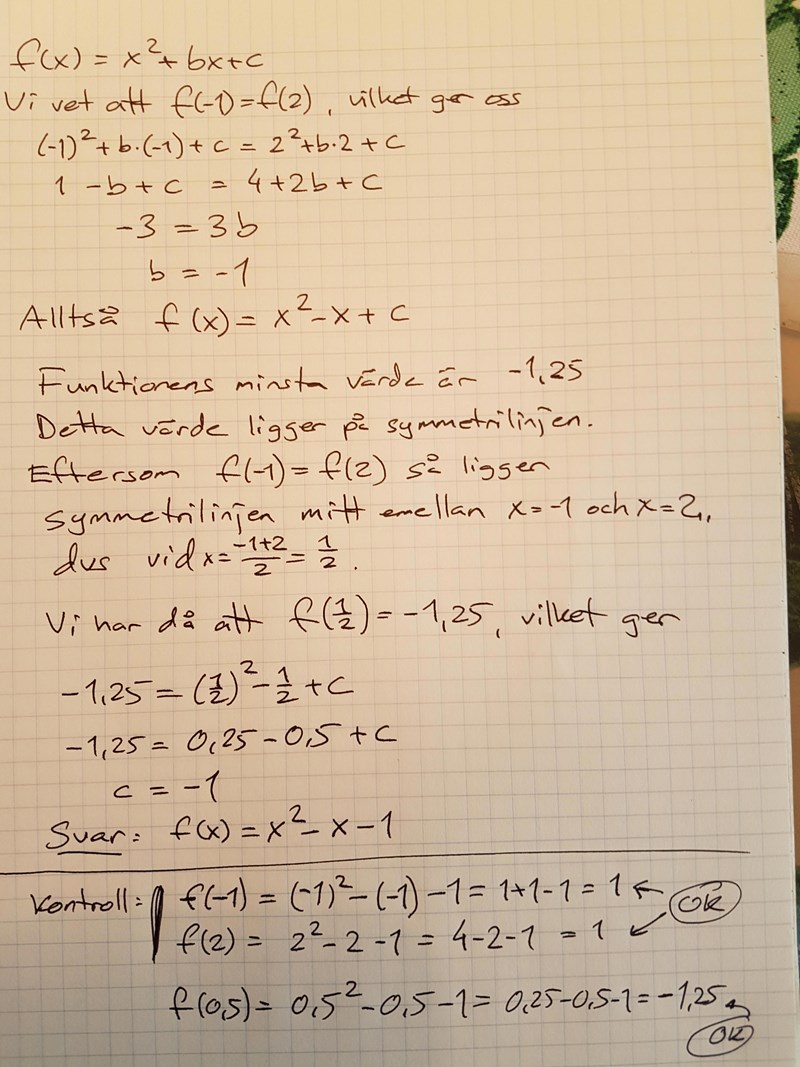 f(x) = x² + bx + c
Vi vet att f(-1) = f(2), vilket ger oss
(-1)² + b·(-1) + c = 2² + b·2 + c
1 - b + c = 4 + 2b + c
-3 = 3b
b = -1
Alltså f(x) = x² - x + c
Funktionens minsta värde är -1,25
Detta värde ligger på symmetrilinjen.
Eftersom f(-1) = f(2) så ligger
symmetrilinjen mitt emellan x = -1 och x = 2,
dvs vid x = \frac{-1+2}{2} = \frac{1}{2}.
Vi har då att f(\frac{1}{2}) = -1,25, vilket ger
-1,25 = (\frac{1}{2})² - \frac{1}{2} + c
-1,25 = 0,25 - 0,5 + c
c = -1
Svar: f(x) = x² - x - 1
Kontroll: f(-1) = (-1)² - (-1) - 1 = 1+1-1 = 1 ← OK
f(2) = 2² - 2 - 1 = 4-2-1 = 1
f(0,5) = 0,5² - 0,5 - 1 = 0,25-0,5-1 = -1,25
OK